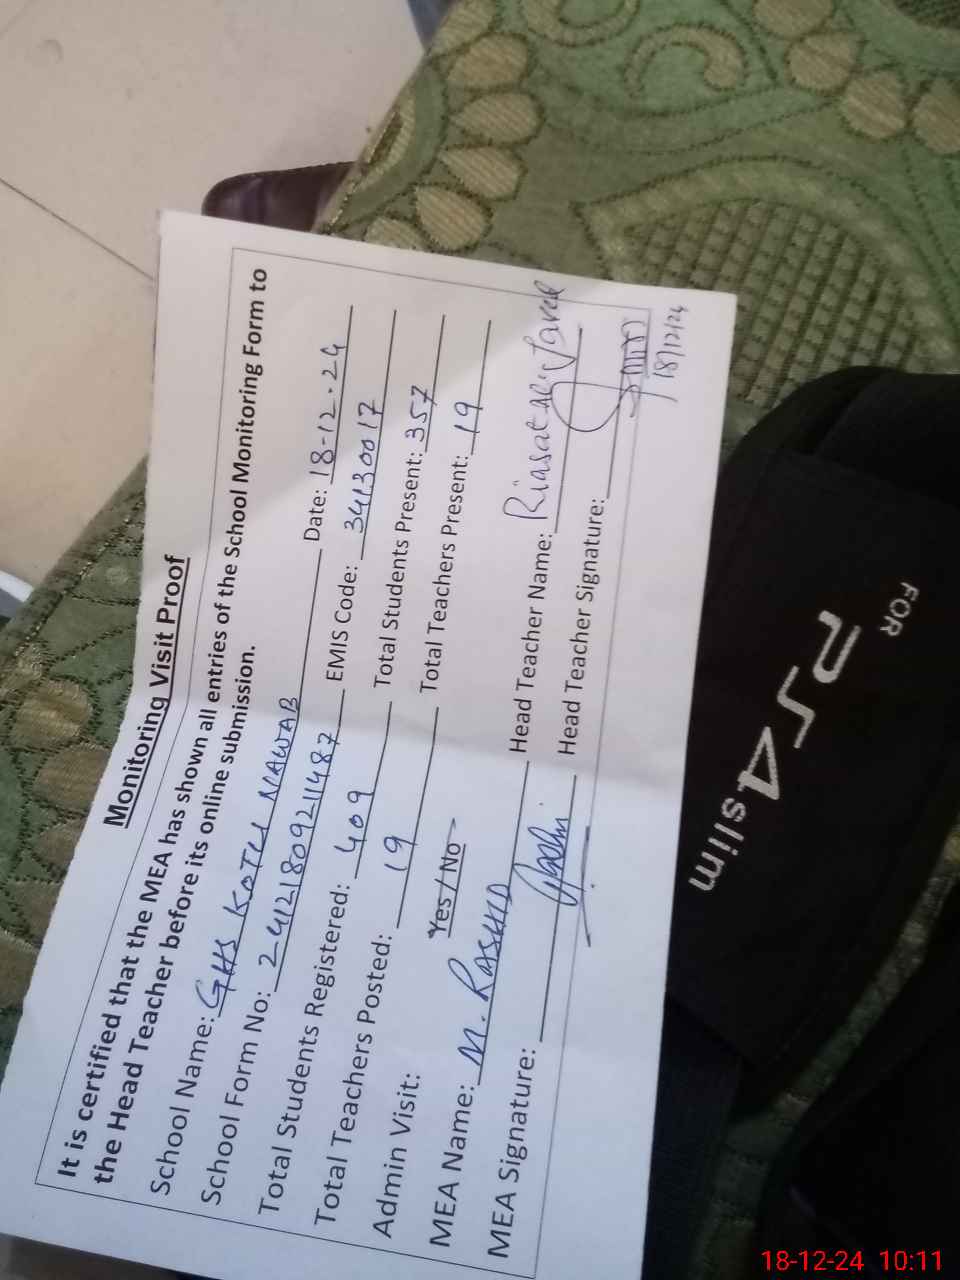 Monitoring Visit Proof
It is certified that the MEA has shown all entries of the School Monitoring Form to
the Head Teacher before its online submission.
School Name: GHS KOTLI NAWAB Date: 18-12-24
School Form No: 2-4121809211487 EMIS Code: 34130017
Total Students Registered: 409 Total Students Present: 357
Total Teachers Posted: 19 Total Teachers Present: 19
Admin Visit: Yes / No
MEA Name: M. RASHID Head Teacher Name: Riasat Ali Javed
MEA Signature: Head Teacher Signature:
18/12/24
FOR
PS4 slim
18-12-24 10:11